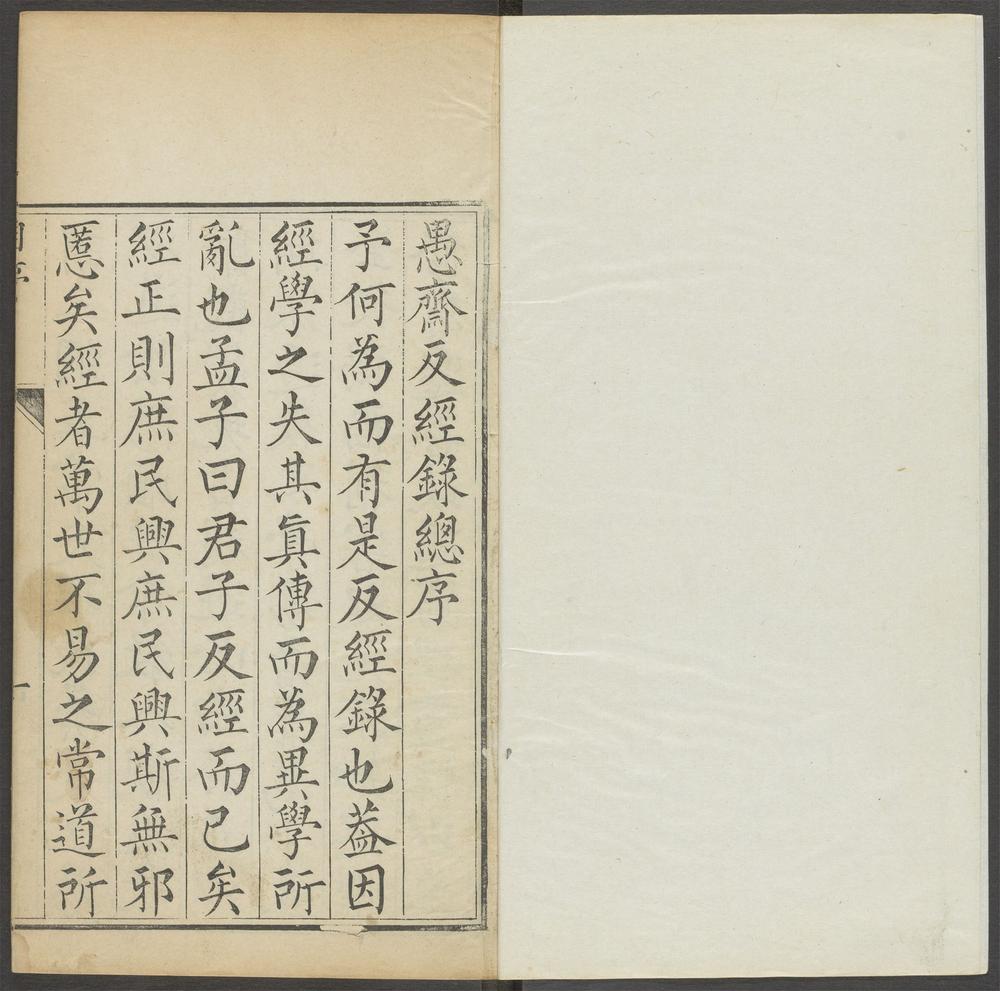 愚齋反經錄總序
予何為而有是反經錄也葢因
經學之失其眞傳而為異學所
亂也孟子曰君子反經而已矣
經正則庶民興庶民興斯無邪
慝矣經者萬世不易之常道所
一